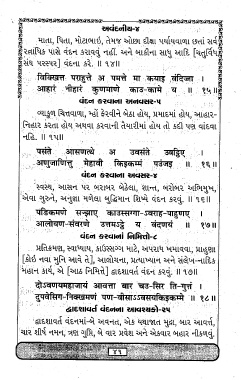 અવંદનીય-૪
માતા, પિતા, મોટાભાઇ, તેમજ ઓછા દીક્ષા પર્યાયવાળા છતાં સર્વ
રત્નાધિક પાસે વંદન કરાવવું નહીં. અને બાકીના સાધુ આદિ [ચતુર્વિધ
સંઘ પરસ્પર] વંદના કરે. ॥ ૧૪॥
વિક્ખિત્ત પરાહુત્તે અ પમત્તે મા કયાઇ વંદિજ્જા ।
આહારં નીહારં કુણમાણે કાઉ-કામે ય ॥ ૧૫॥
વંદન કરવાના અનવસર-૫
વ્યાકુળ ચિત્તવાળા, મ્હોં ફેરવીને બેઠા હોય, પ્રમાદમાં હોય, આહાર-
નિહાર કરતા હોય અથવા કરવાની તૈયારીમાં હોય તો કદી પણ વાંદવા
નહિ. ॥ ૧૫॥
પસંતે આસણત્થે અ ઉવસંતે ઉવટ્ઠિએ ।
અણુજાણિત્તુ મેહાવી કિઇકમ્મં પઉંજઇ ॥ ૧૬॥
વંદન કરવાના અવસર-૪
સ્વસ્થ, આસન પર બરાબર બેઠેલા, શાન્ત, બરોબર અભિમુખ,
એવા ગુરુને, અનુજ્ઞા મળેલા બુદ્ધિમાન શિષ્ય વંદન કરવું. ॥ ૧૬॥
પડિકમણે સજ્ઝાએ કાઉસ્સગ્ગા-ડવરાહ-પાહુણએ ।
આલોયણ-સંવરણે ઉત્તમટ્ઠે ય વંદણયં ॥ ૧૭॥
વંદન કરવાનાં નિમિત્તો-૮
પ્રતિક્રમણ, સ્વાધ્યાય, કાઉસ્સગ્ગ માટે, અપરાધ ખમાવવા, પ્રાહુણા
[કોઇ નવા મુનિ આવે તે], આલોયના, પ્રત્યાખ્યાન અને સંલેખનાદિક
મહાન કાર્ય, એ [આઠ નિમિત્તે] દ્વાદશાવર્ત વંદન કરવું. ॥ ૧૭॥
દોડવણયમહાજાયં આવત્તા બાર ચઉ-સિર તિ-ગુત્તં ।
દુપવેસિગ-નિક્ખમણં પણ-વીસાડડવસયકિઇકમ્મે ॥ ૧૮॥
દ્વાદશાવર્ત વંદનના આવશ્યકો-૨૫
દ્વાદશાવર્ત વંદનમાં-બે અવનત, એક યથાજાત મુદ્રા, બાર આવર્ત,
ચાર શીર્ષ નમન, ત્રણ ગુપ્તિ, બે વાર પ્રવેશ અને એકવાર બહાર નીકળવું.
૬૧